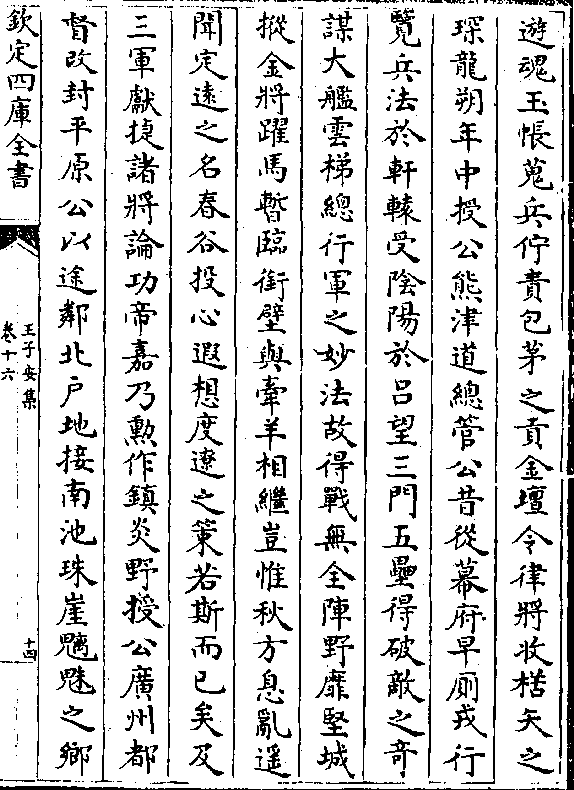 遊魂玉帳蒐兵佇責包茅之貢金壇令律將收楛矢之
琛龍朔年中授公熊津道總管公昔從幕府早厠戎行
覽兵法於軒轅受陰陽於吕望三門五壘得破敵之竒
謀大艦雲梯總行軍之妙法故得戰無全陣野靡堅城
摐金將躍馬暫臨銜璧與牽羊相繼豈惟秋方息亂遥
聞定遠之名春谷投心遐想度遼之策若斯而已矣及
三軍獻捷諸將論功帝嘉乃勲作鎮炎野授公廣州都
督改封平原公以途鄰北戸地接南池珠崖魑魅之鄉
欽定四庫全書
王子安集
卷十六
十四